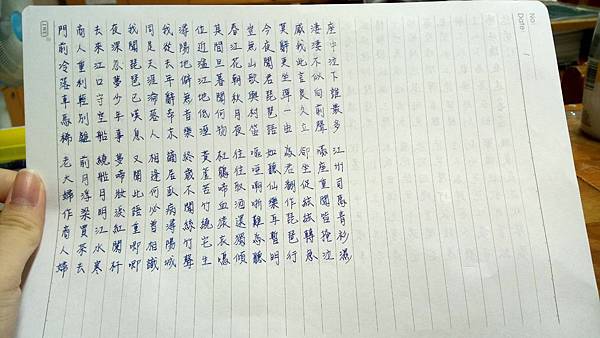 No.
Date
門前冷落車馬稀 老大嫁作商人婦
商人重利輕別離 前月浮梁買茶去
去來江口守空船 繞船月明江水寒
夜深忽夢少年事 夢啼妝淚紅闌杆
我聞琵琶已嘆息 又聞此語重唧唧
同是天涯淪落人 相逢何必曾相識
我從去年辭帝京 謫居臥病潯陽城
潯陽地僻無音樂 終歲不聞絲竹聲
住近湓江地低濕 黃蘆苦竹繞宅生
其間旦暮聞何物 杜鵑啼血猿哀鳴
春江花朝秋月夜 往往取酒還獨傾
豈無山歌與村笛 嘔啞嘲哳難為聽
今夜聞君琵琶語 如聽仙樂耳暫明
莫辭更坐彈一曲 為君翻作琵琶行
感我此言良久立 卻坐促絃絃轉急
淒淒不似向前聲 滿座重聞皆掩泣
座中泣下誰最多 江州司馬青衫濕